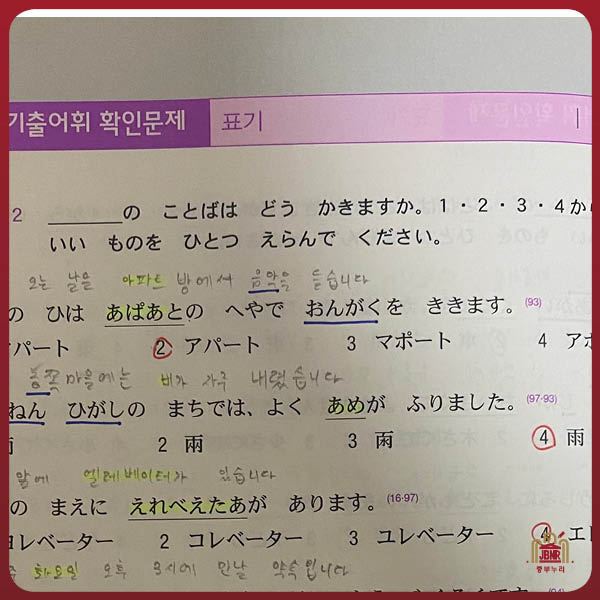 기출어휘 확인문제 표기
2 ______の ことばは どう かきますか。1・2・3・4から
いい ものを ひとつ えらんで ください。
오는 날은 아파트 방에서 음악을 듣습니다
の ひは あぱあとの へやで おんがくを ききます。(93)
パート 2 アパート 3 マポート 4 アポ
동쪽마을에는 비가 자주 내렸습니다
ねん ひがしの まちでは、よく あめが ふりました。(97·93)
2 3 4 雨
앞에 엘레베이터가 있습니다
の まえに えれべえたあが あります。(16·97)
ヨレベーター 2 コレベーター 3 ユレベーター 4 エレ
화요일 오후 3시에 만날 약속입니다
JBNR
중부누리